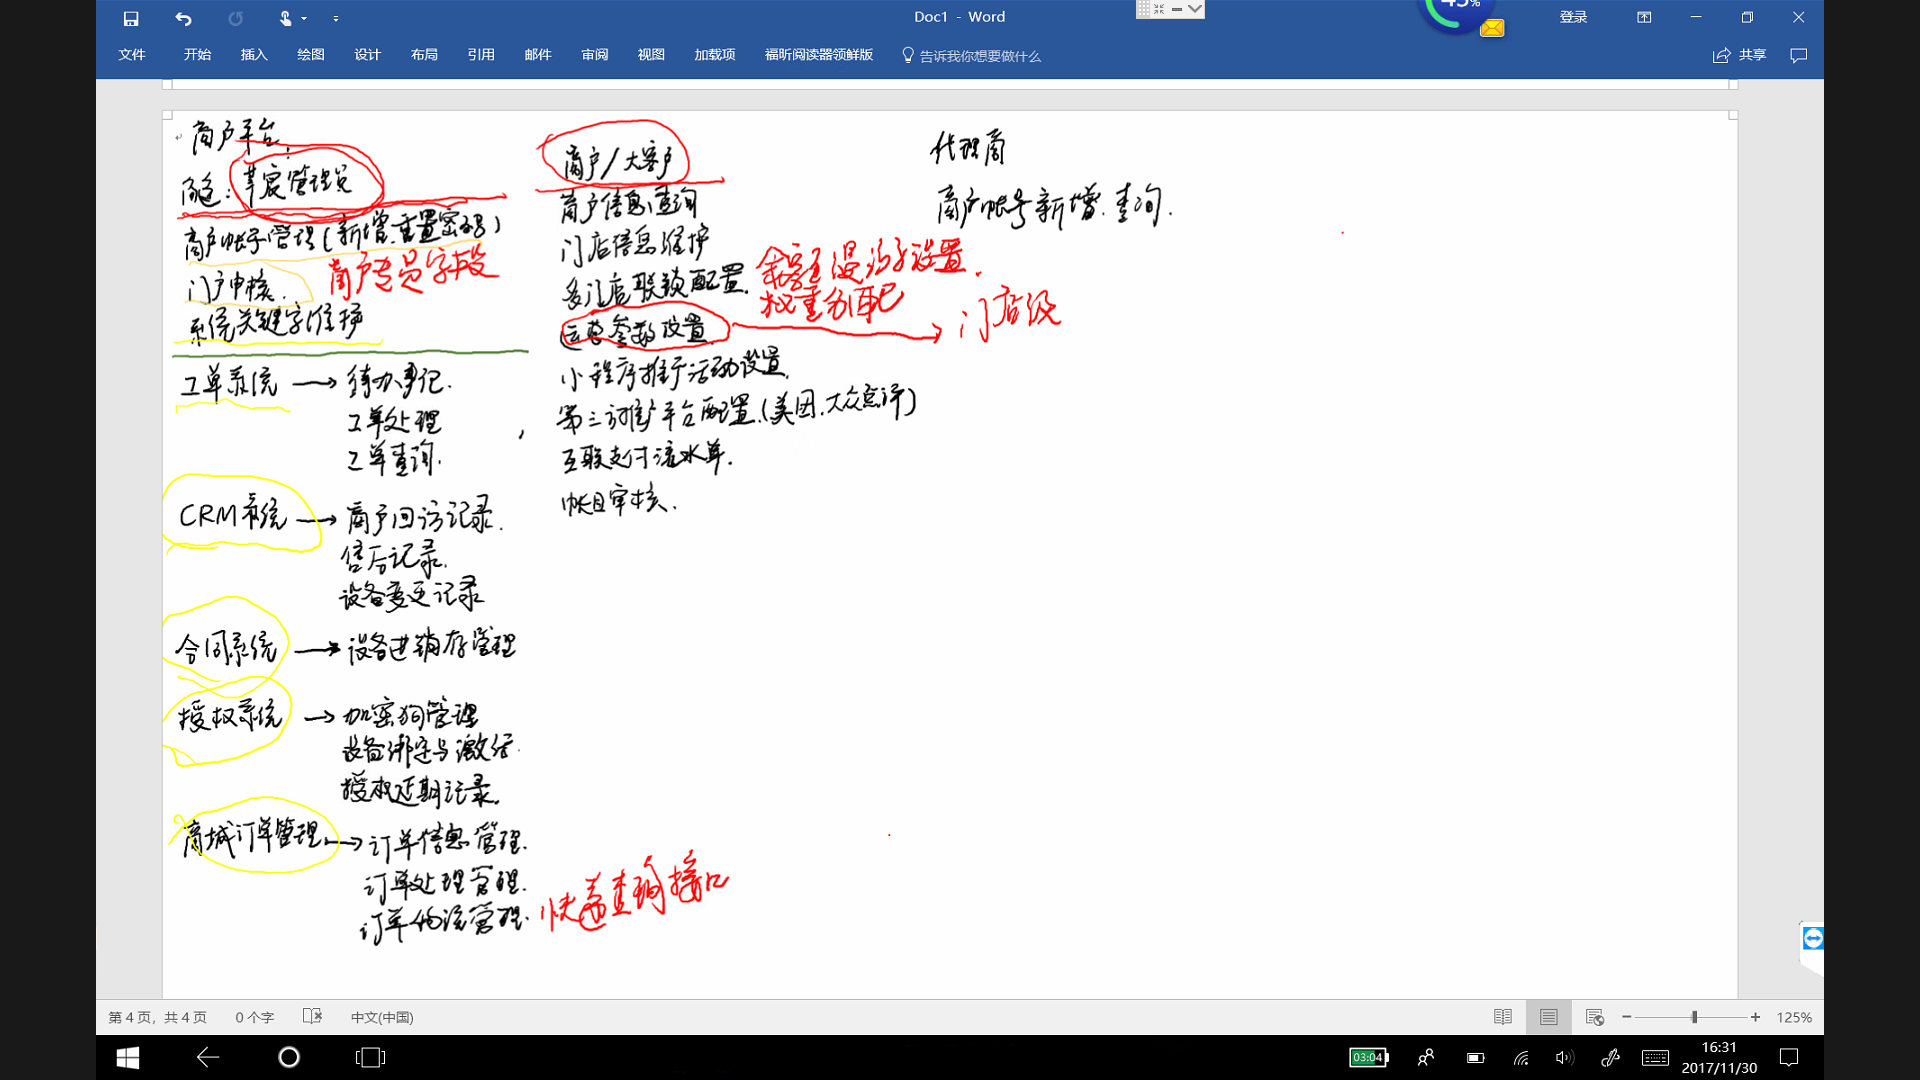 Doc1 - Word
45%
登录
文件 开始 插入 绘图 设计 布局 引用 邮件 审阅 视图 加载项 福昕阅读器领鲜版 告诉我你想要做什么
共享
商户平台
角色: 管理员
商户帐号管理(新增.重置密码)
商户专员字段
门户审核.
系统关键字维护
工单系统 → 待办事记.
工单处理
工单查询.
CRM系统 → 商户回访记录.
售后记录.
设备变更记录
合同系统 → 设备进销存管理
授权系统 → 加密狗管理
设备绑定与激活.
授权延期记录.
商城订单管理. → 订单信息管理.
订单处理管理.
订单物流管理.
快递查询接口
商户/大客户
商户信息查询
门店信息维护
多门店联锁配置.
运营参数设置. → 门店级
设置.
权重分配
小程序推广活动设置.
第三方 平台配置.(美团.大众点评)
互联支付流水单.
帐目审核.
代理商
商户帐号新增.查询.
第 4 页，共 4 页 0 个字 中文(中国)
125%
03:04
16:31
2017/11/30